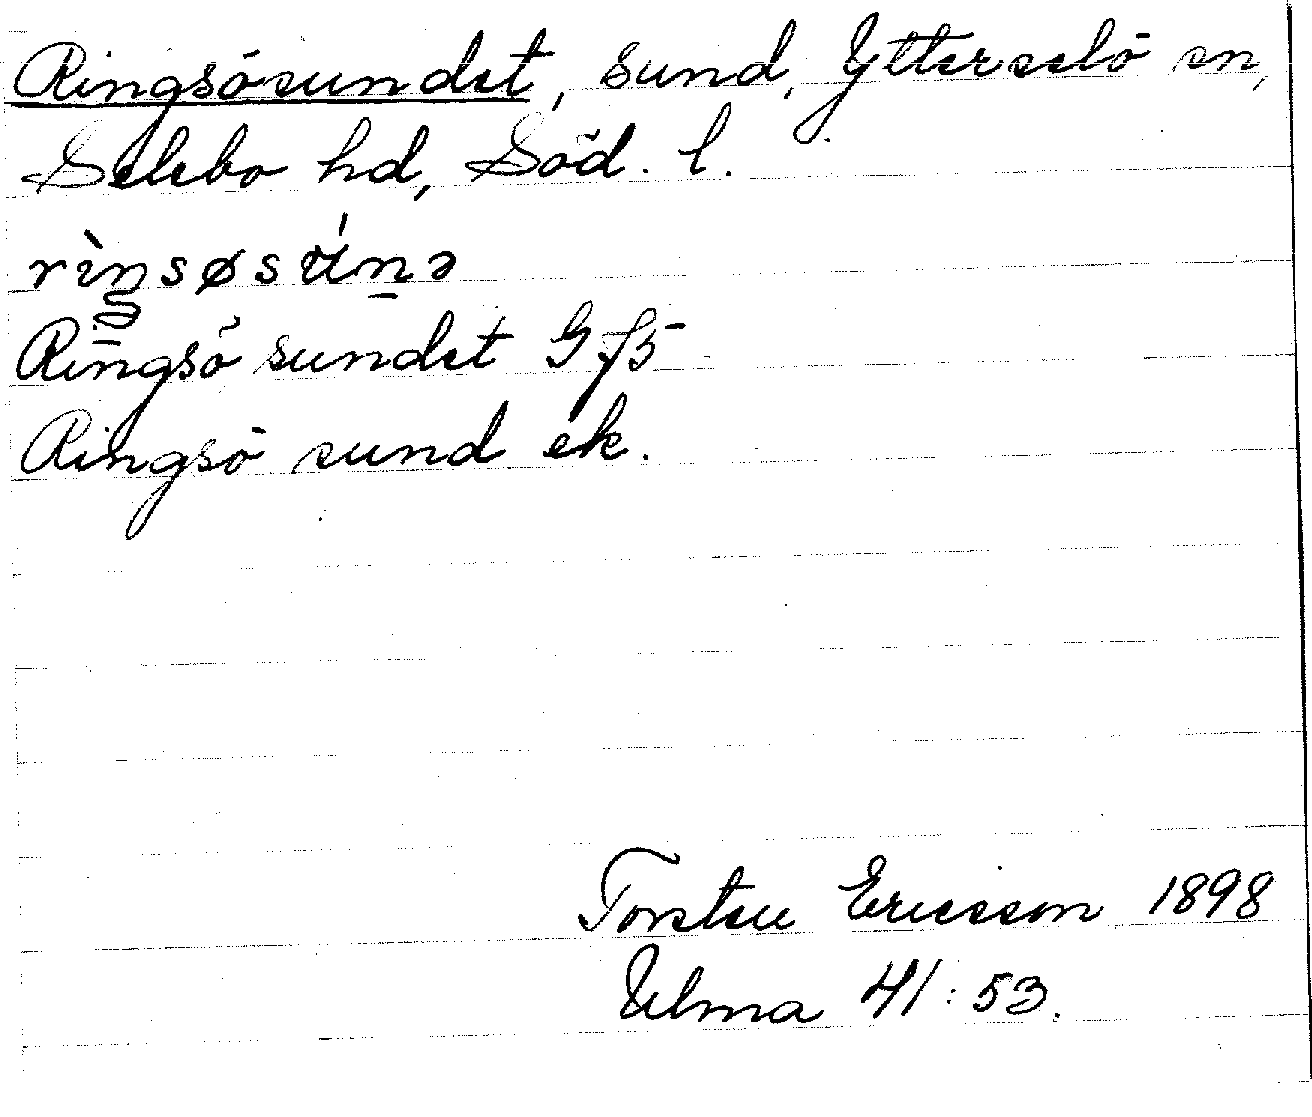 Ringsösundet, sund, Ytterselö sn,
Selebo hd, Söd. l.
rìŋsøsʉ́nə
Ringsö sundet Gfb
Ringsö sund ek.
Torsten Ericsson 1898
Ulma 41:53.